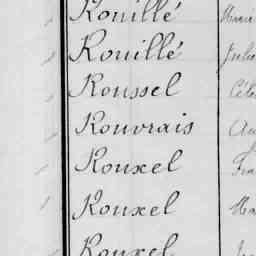 Rouillé
Rouillé Julie
Roussel
Rouvrais
Rouxel
Rouxel
Rouxel